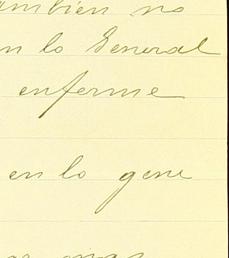 ambien no
en lo General
enferme
en lo gene